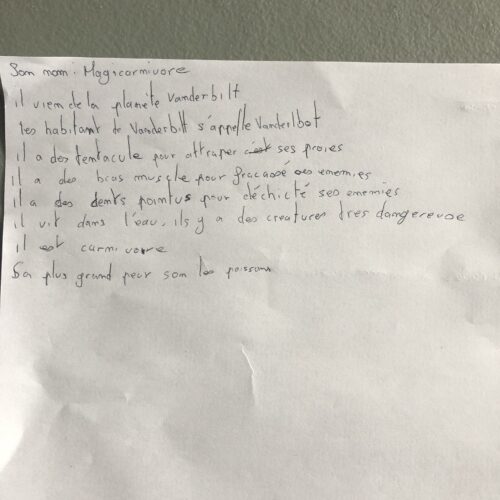 Son nom : Magicarnivore
il vien de la planète Vanderbilt
les habitant de Vanderbilt s'appelle Vanderlbot
il a des tentacule pour attraper c'est ses proies
il a des bras muscle pour fracassé ses enemies
il a des dents pointus pour déchicté ses enemies
il vit dans l'eau, ils y a des creatures dres dangereuse
il est carnivore
Sa plus grand peur son les poissons